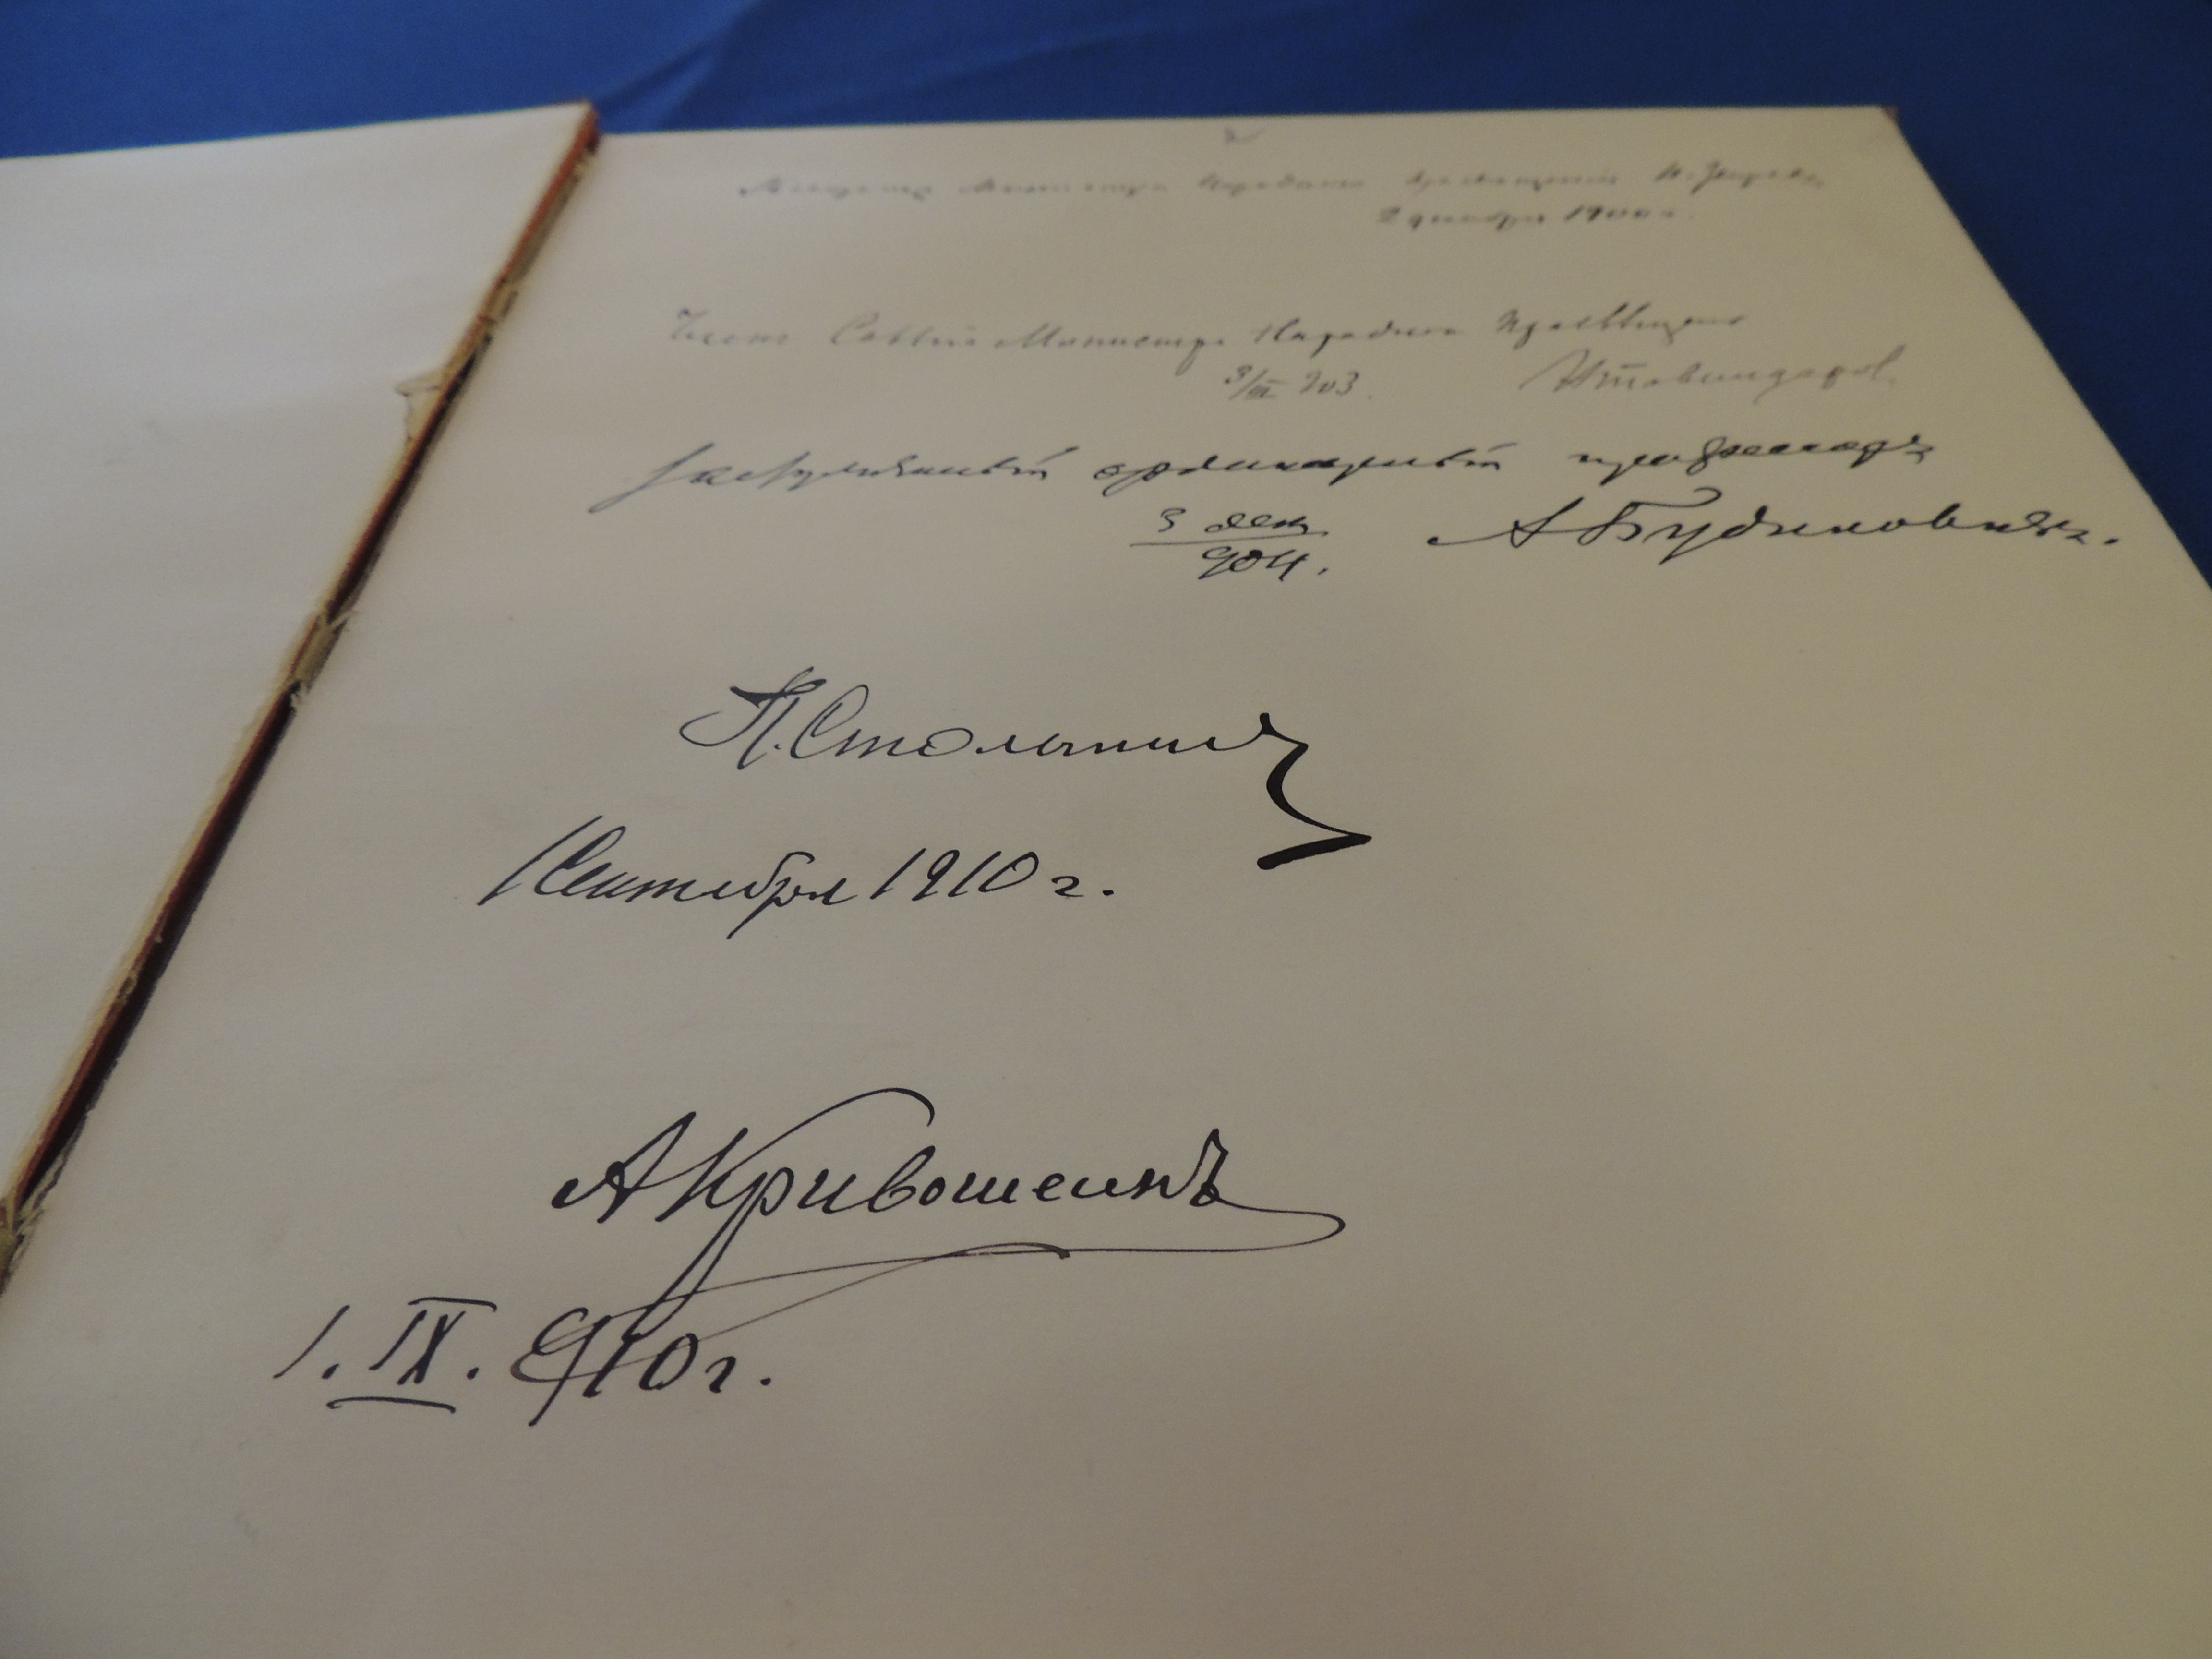 2 декабря 1900 г.
Членъ Совѣта Министра Народнаго Просвѣщенія
3/III 903.
Заслуженный ординарный профессоръ
3 дек
904. А Будиловичъ.
П. Столыпинъ
1 Сентября 1910 г.
А Кривошеинъ
1. IX. 910 г.